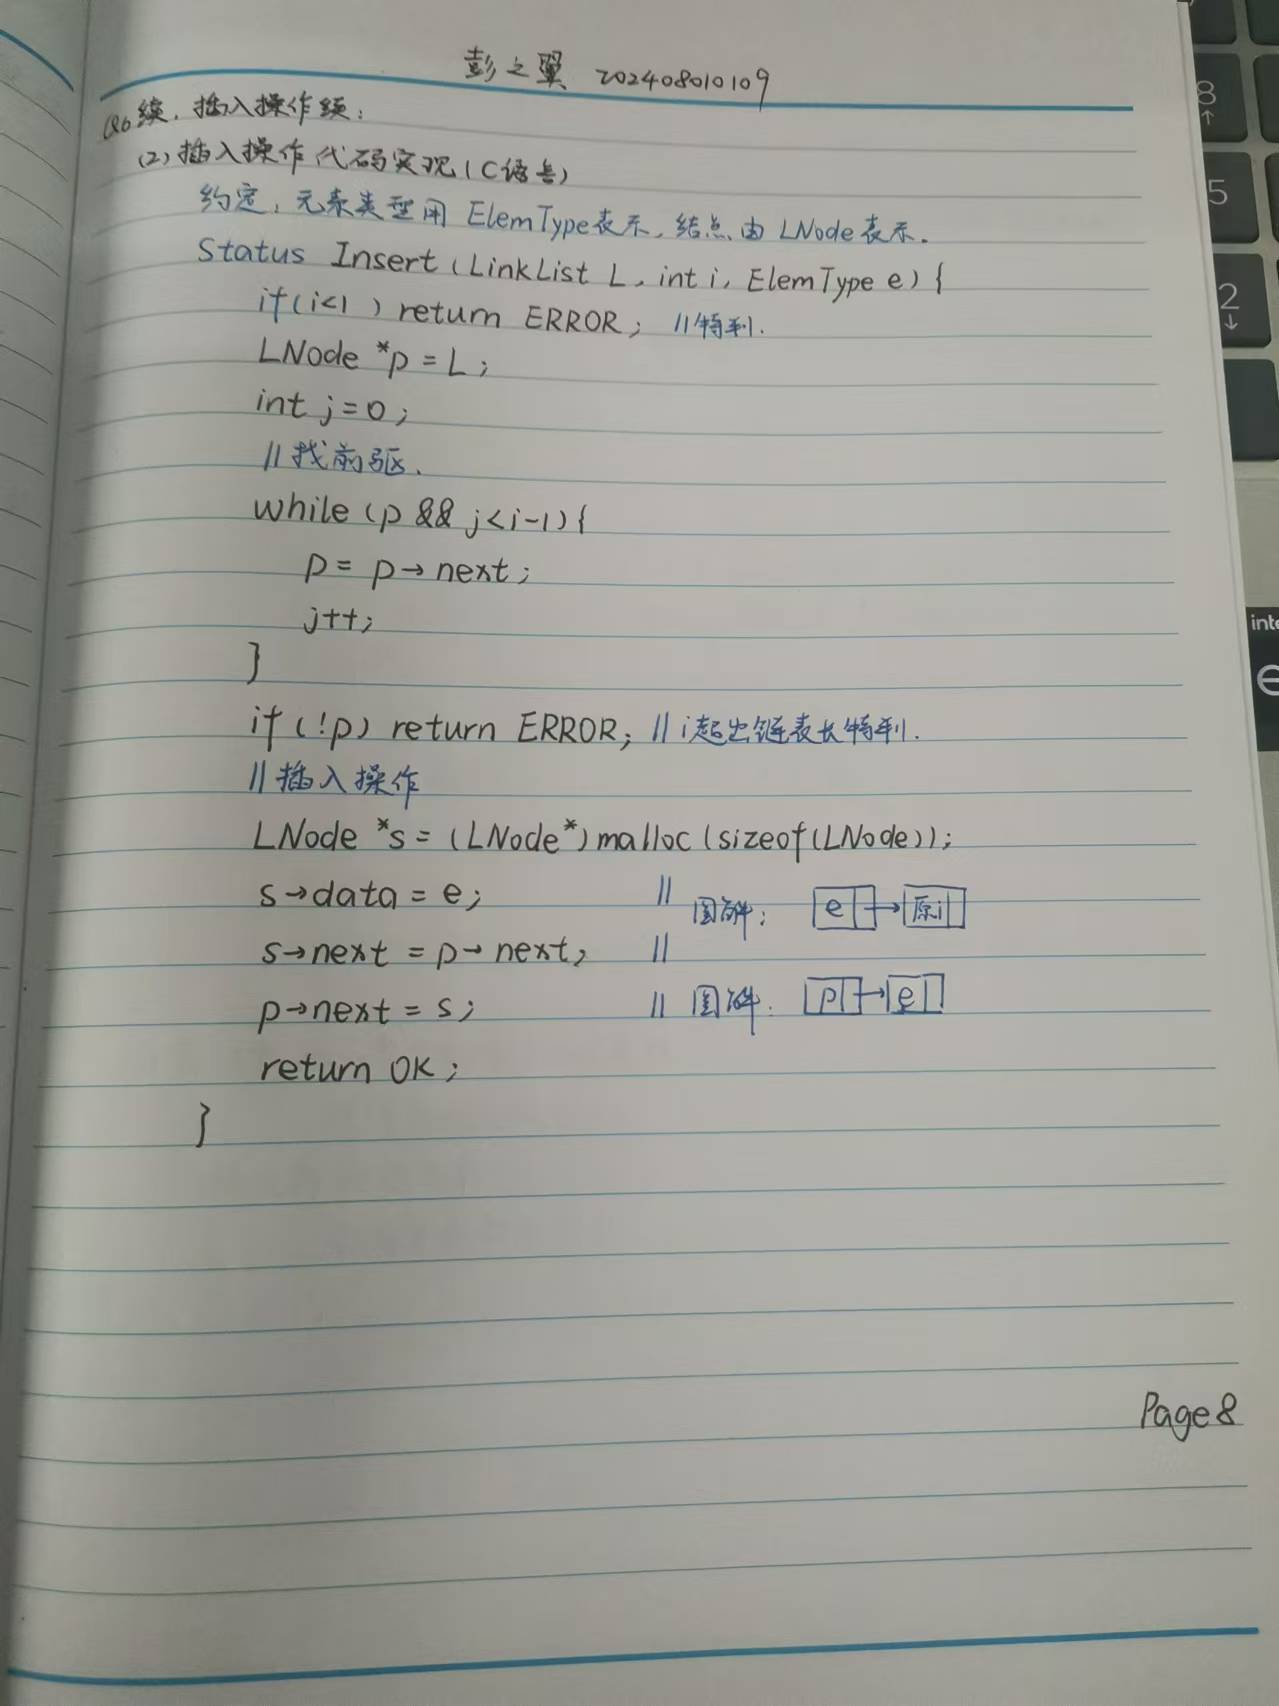 彭之翼 202408010109
Q6续.插入操作续：
(2)插入操作代码实现(C语言)
约定，元素类型用 ElemType表示，结点由 LNode 表示.
Status Insert(LinkList L, int i, ElemType e){
if(i<1) return ERROR; //特判.
LNode *p=L;
int j=0;
//找前驱.
while(p && j<i-1){
p=p→next;
j++;
}
if(!p) return ERROR; //i超出链表长特判.
//插入操作
LNode *s=(LNode*)malloc(sizeof(LNode));
s→data=e; // 图解: e → 原i
s→next=p→next; //
p→next=s; // 图解: p → e
return OK;
}
Page 8
8
↑
5
2
↓
inte